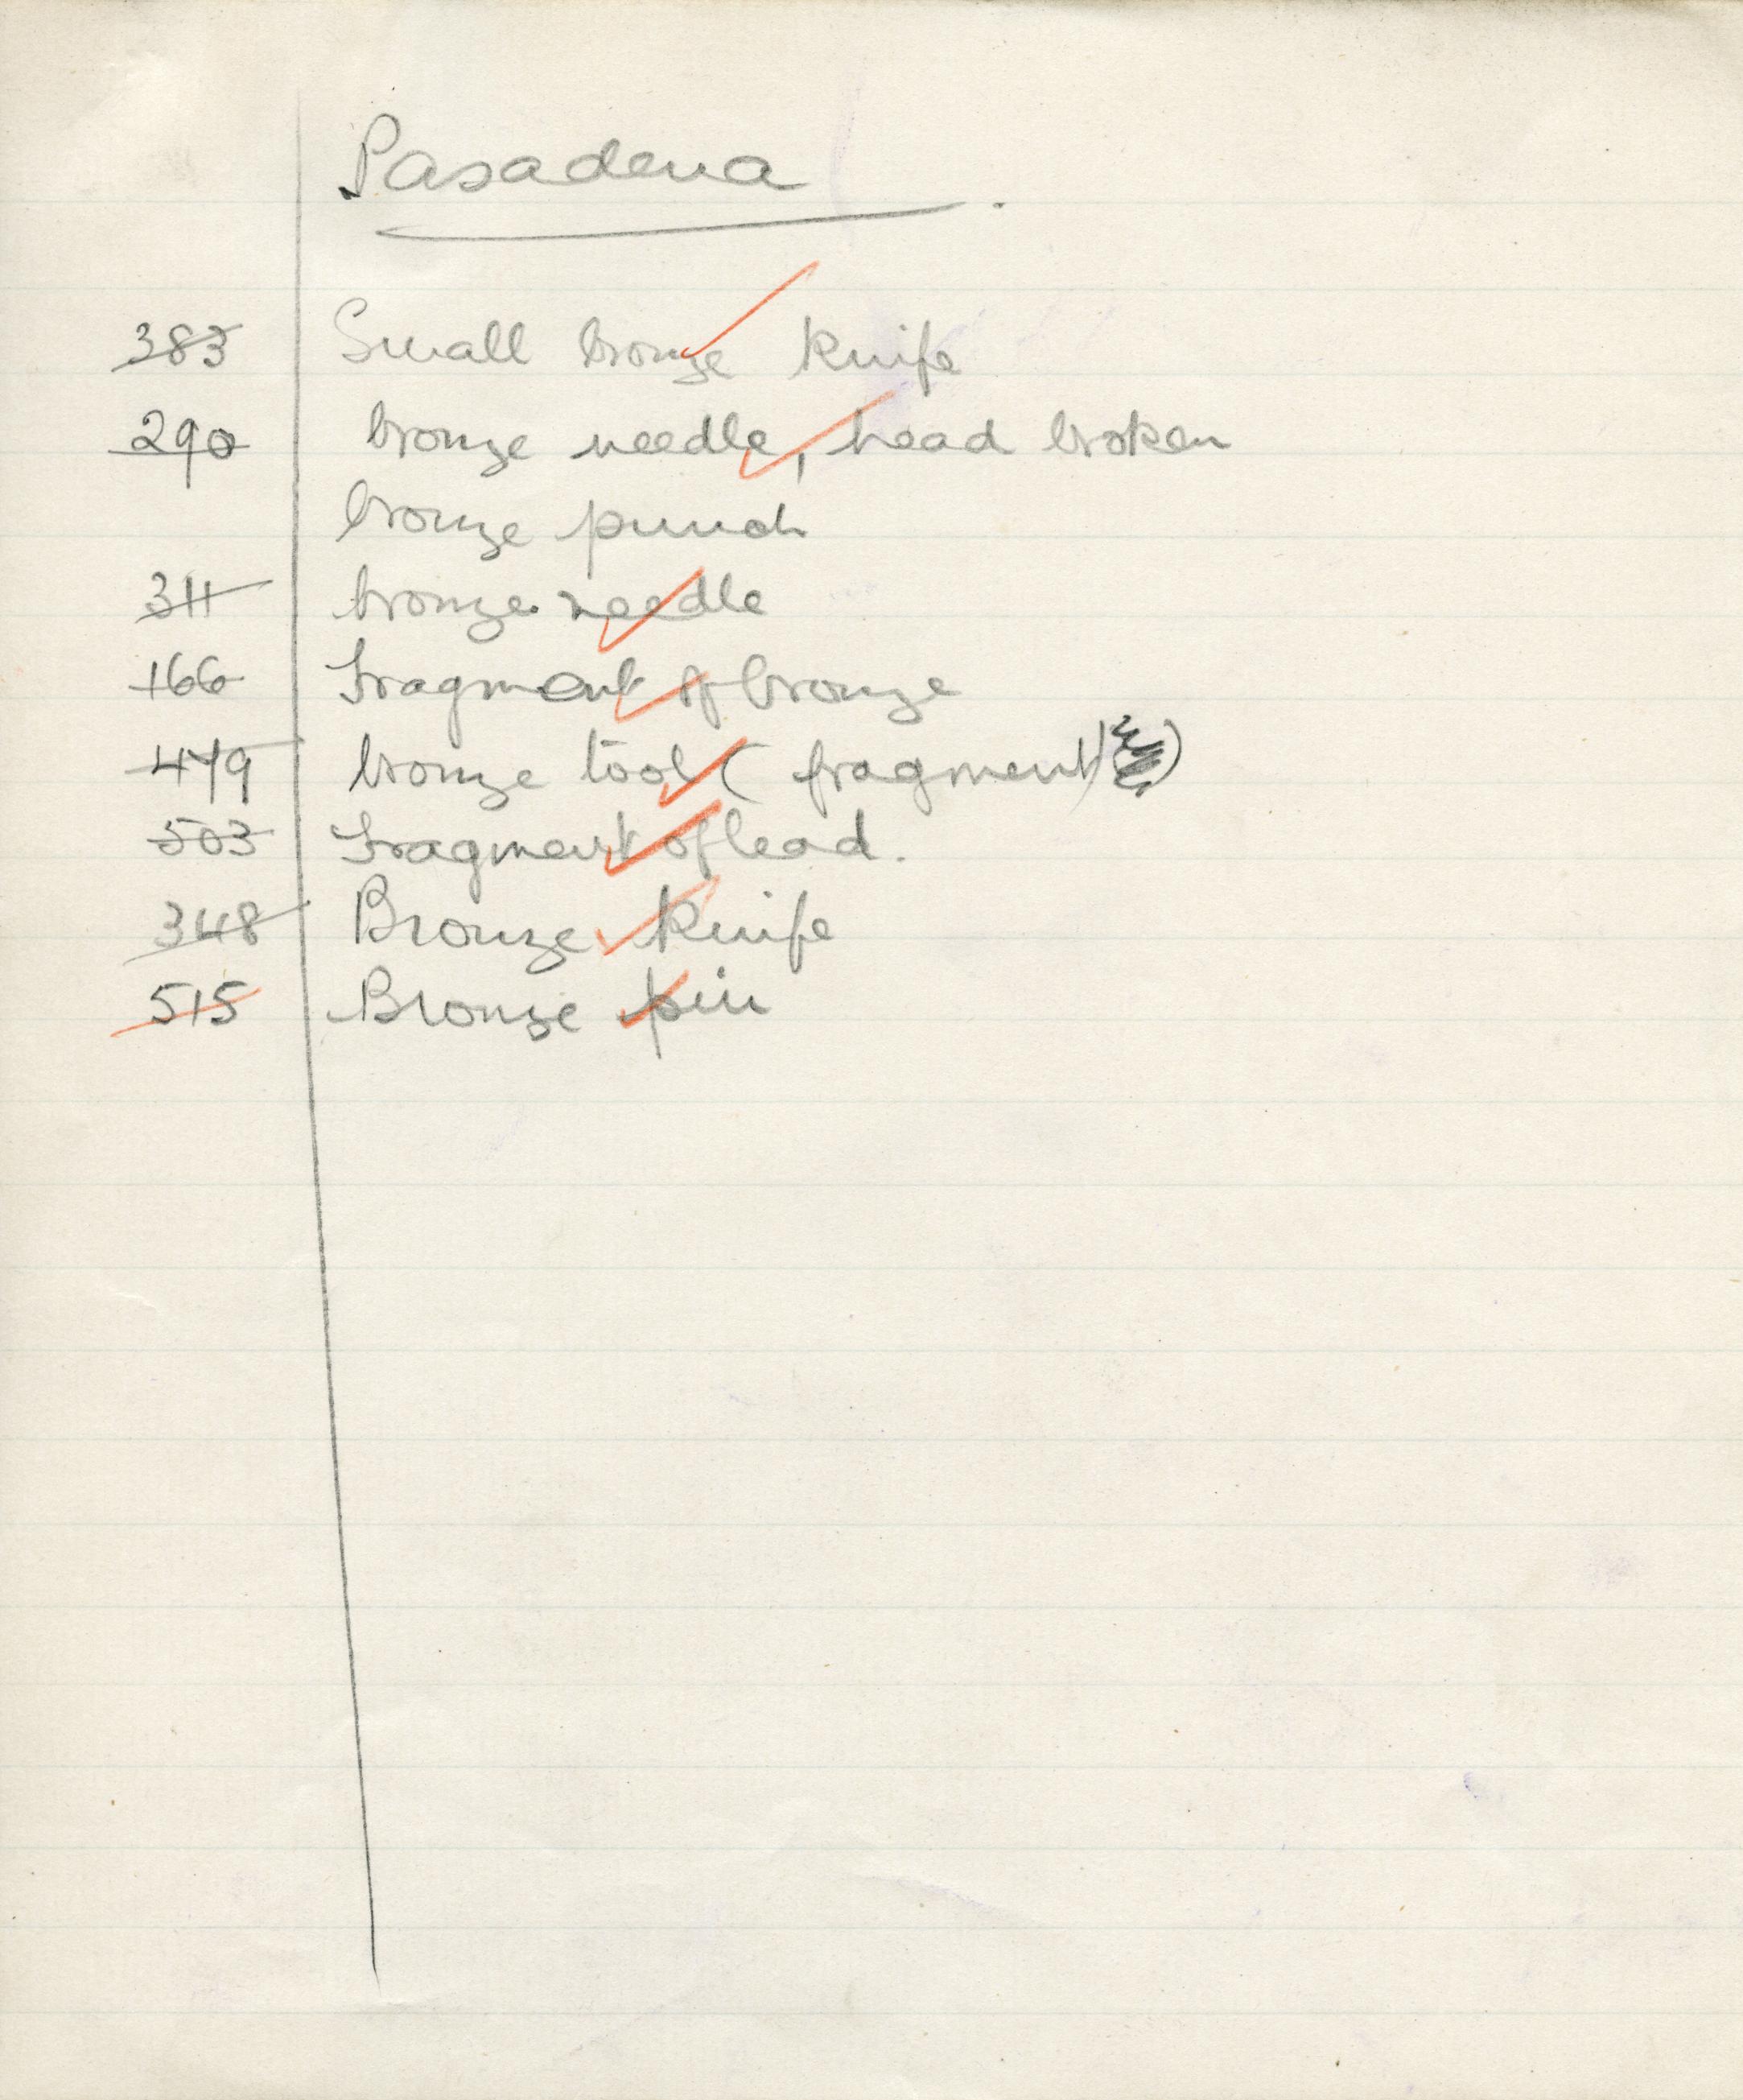 Pasadena.
383 Small bronze knife
290 bronze needle, head broken
bronze punch
311 bronze needle
166 Fragment of bronze
479 bronze tool (fragment)
503 Fragment of lead.
348 Bronze knife
515 Bronze pin